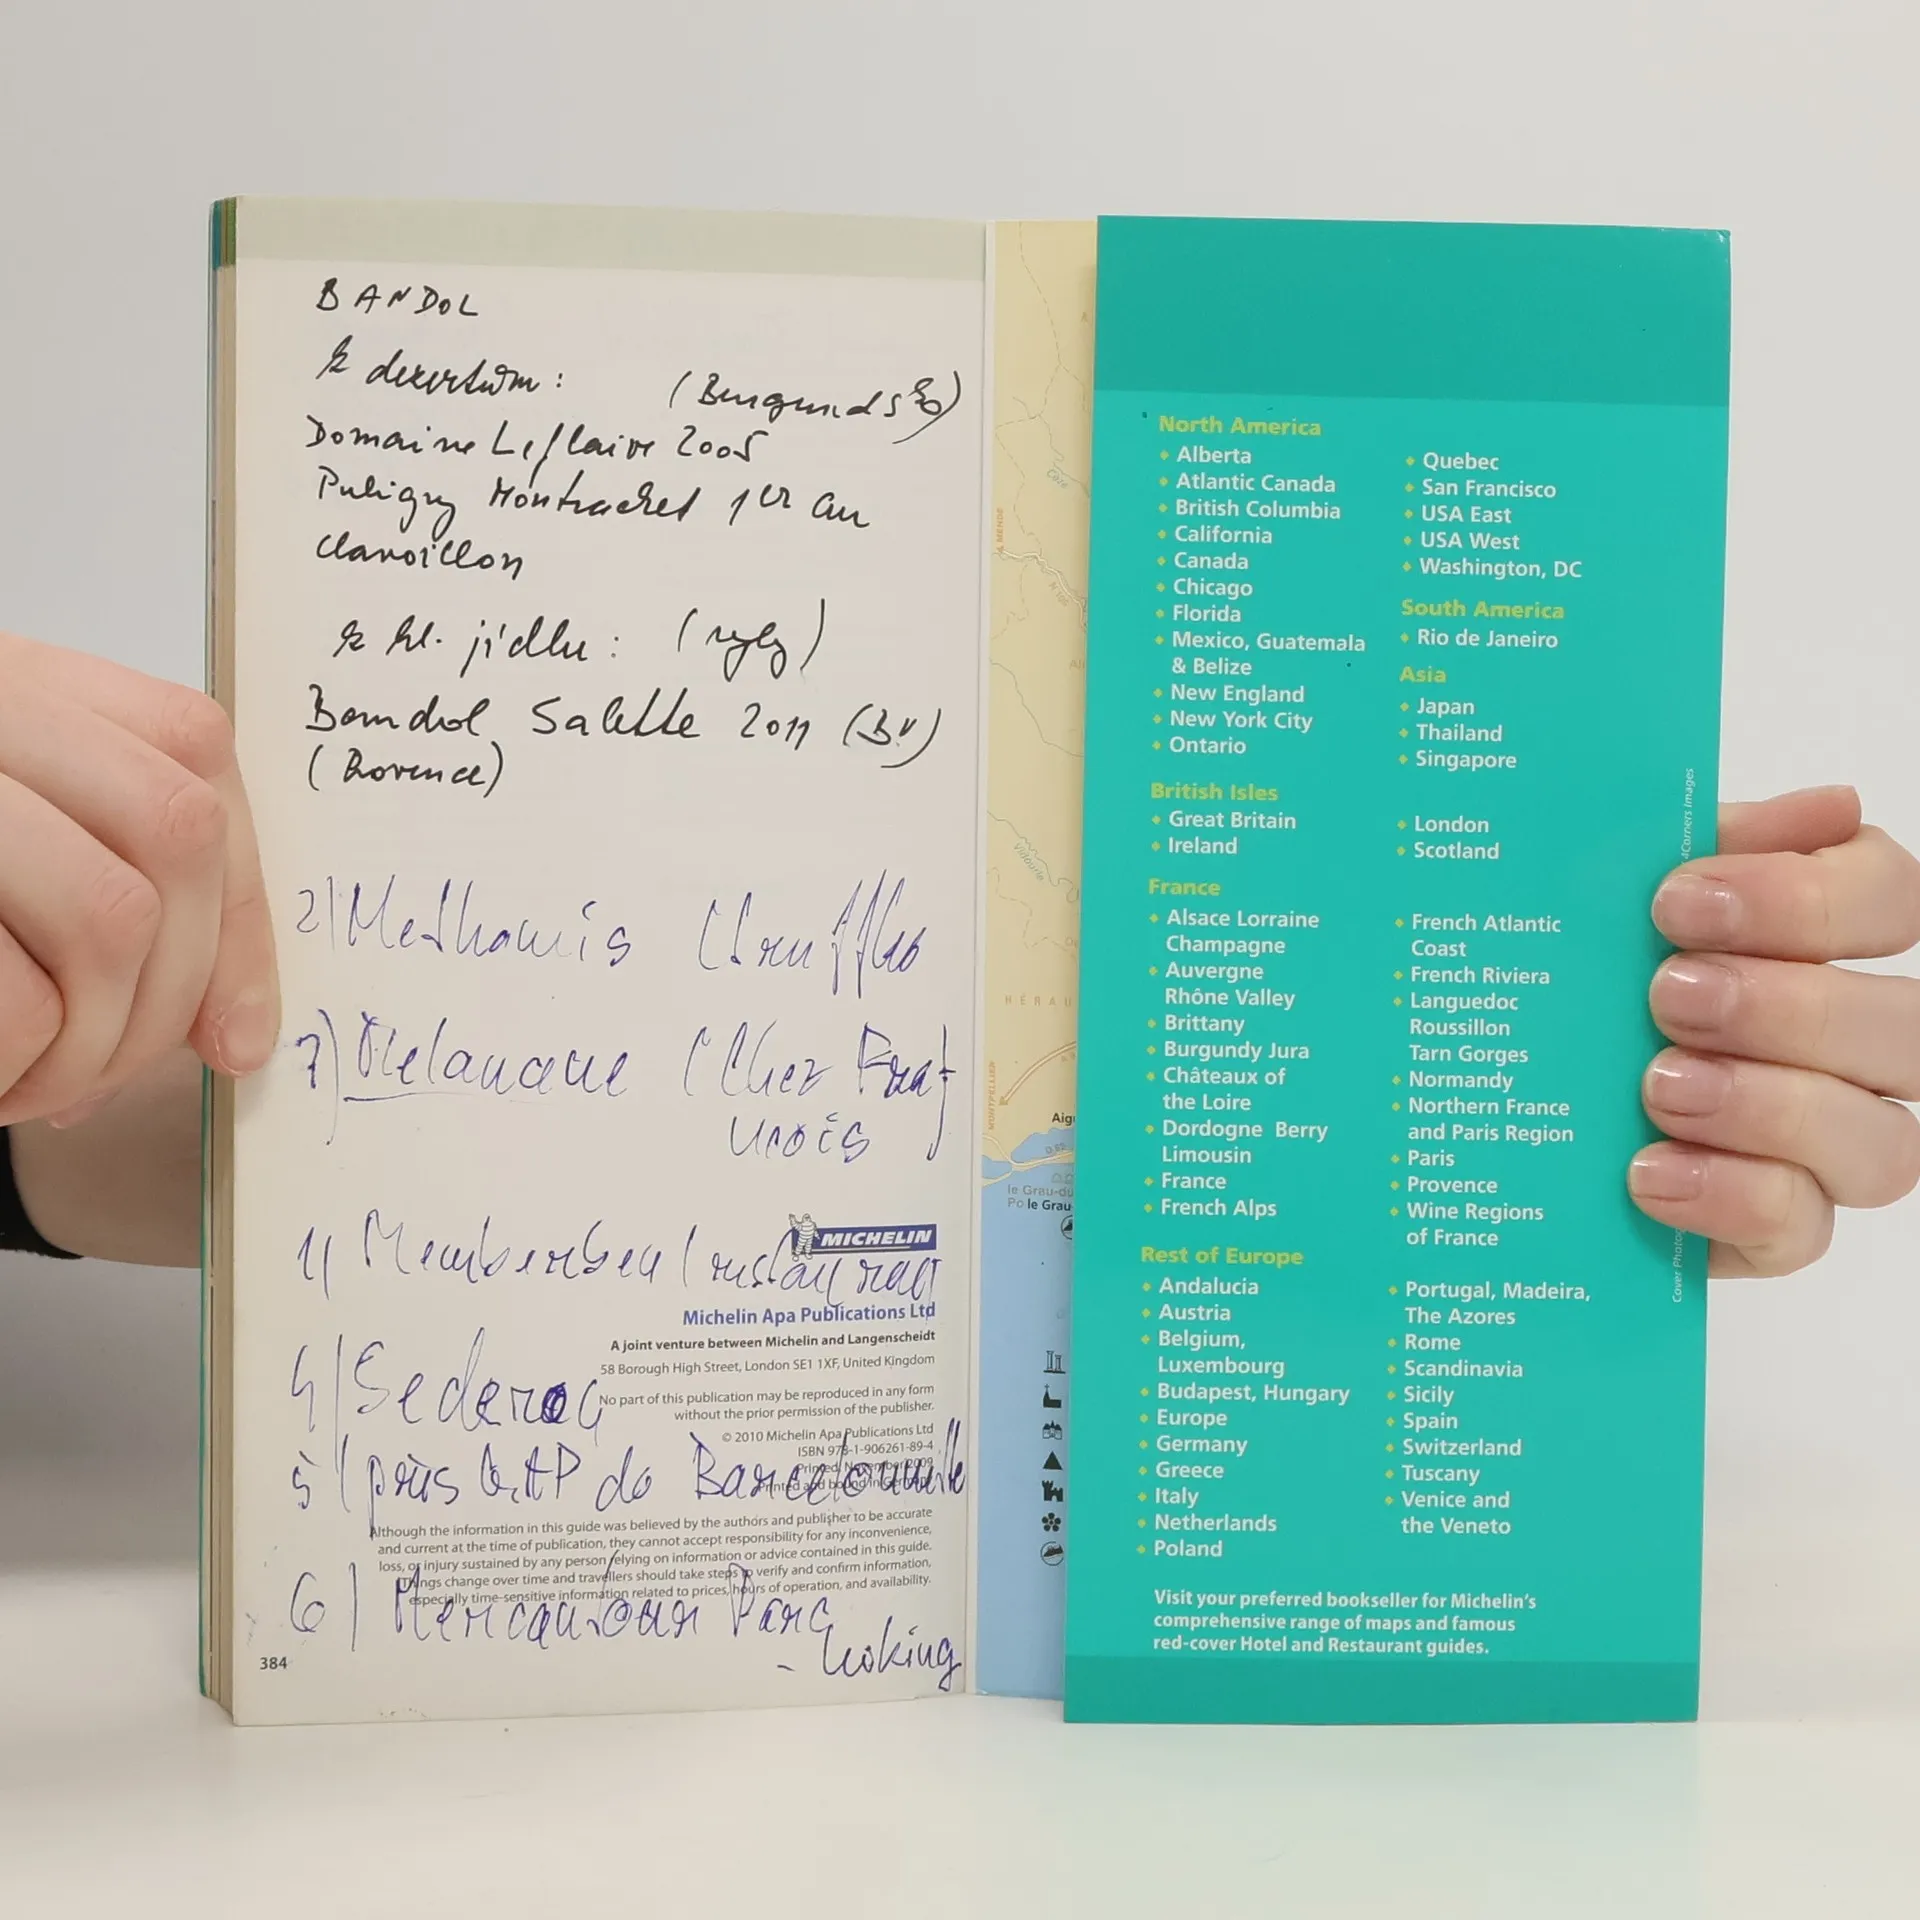 BANDOL
k dezertům: (Burgundsko)
Domaine Leflaive 2005
Puligny Montrachet 1er cru
Clavoillon
k hl. jídlu: (ryby)
Bandol Salette 2011 (BV)
(Provence)
2) Methamis (truffle
7) (Chez Fran-
cois)
1) (restaurant
MICHELIN
Michelin Apa Publications Ltd
A joint venture between Michelin and Langenscheidt
58 Borough High Street, London SE1 1XF, United Kingdom
4) Sederoc
No part of this publication may be reproduced in any form
without the prior permission of the publisher.
© 2010 Michelin Apa Publications Ltd
ISBN 978-1-906261-89-4
Printed: November 2009
Printed and bound in Germany
5) près GAP do Barcelonnette
Although the information in this guide was believed by the authors and publisher to be accurate
and current at the time of publication, they cannot accept responsibility for any inconvenience,
loss, or injury sustained by any person relying on information or advice contained in this guide.
Things change over time and travellers should take steps to verify and confirm information,
especially time-sensitive information related to prices, hours of operation, and availability.
6) Mercantour Parc
384
A MENDE
N 106
Cèze
Vidourle
HÉRAU
MONTPELLIER
Aig
D 62
le Grau-du
le Grau-
North America
Alberta
Atlantic Canada
British Columbia
California
Canada
Chicago
Florida
Mexico, Guatemala
& Belize
New England
New York City
Ontario
Quebec
San Francisco
USA East
USA West
Washington, DC
South America
Rio de Janeiro
Asia
Japan
Thailand
Singapore
British Isles
Great Britain
Ireland
London
Scotland
France
Alsace Lorraine
Champagne
Auvergne
Rhône Valley
Brittany
Burgundy Jura
Châteaux of
the Loire
Dordogne Berry
Limousin
France
French Alps
French Atlantic
Coast
French Riviera
Languedoc
Roussillon
Tarn Gorges
Normandy
Northern France
and Paris Region
Paris
Provence
Wine Regions
of France
Rest of Europe
Andalucia
Austria
Belgium,
Luxembourg
Budapest, Hungary
Europe
Germany
Greece
Italy
Netherlands
Poland
Portugal, Madeira,
The Azores
Rome
Scandinavia
Sicily
Spain
Switzerland
Tuscany
Venice and
the Veneto
Visit your preferred bookseller for Michelin's
comprehensive range of maps and famous
red-cover Hotel and Restaurant guides.
Cover Photo
4Corners Images